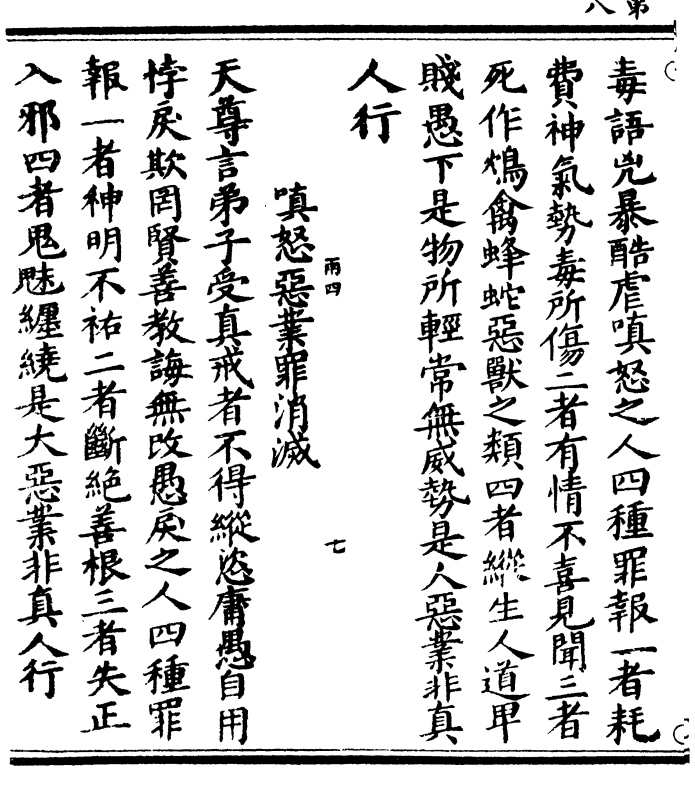 第
八
毒語兇暴酷虐嗔怒之人四種罪報一者耗
費神氣勢毒所傷二者有情不喜見聞三者
死作鴆禽蜂蛇惡獸之類四者縱生人道卑
賤愚下是物所輕常無威勢是人惡業非真
人行
雨四
七
嗔怒惡業罪消滅
天尊言弟子受真戒者不得縱恣庸愚自用
悖戾欺罔賢善教誨無改愚戾之人四種罪
報一者神明不祐二者斷絕善根三者失正
入邪四者鬼魅纏繞是大惡業非真人行